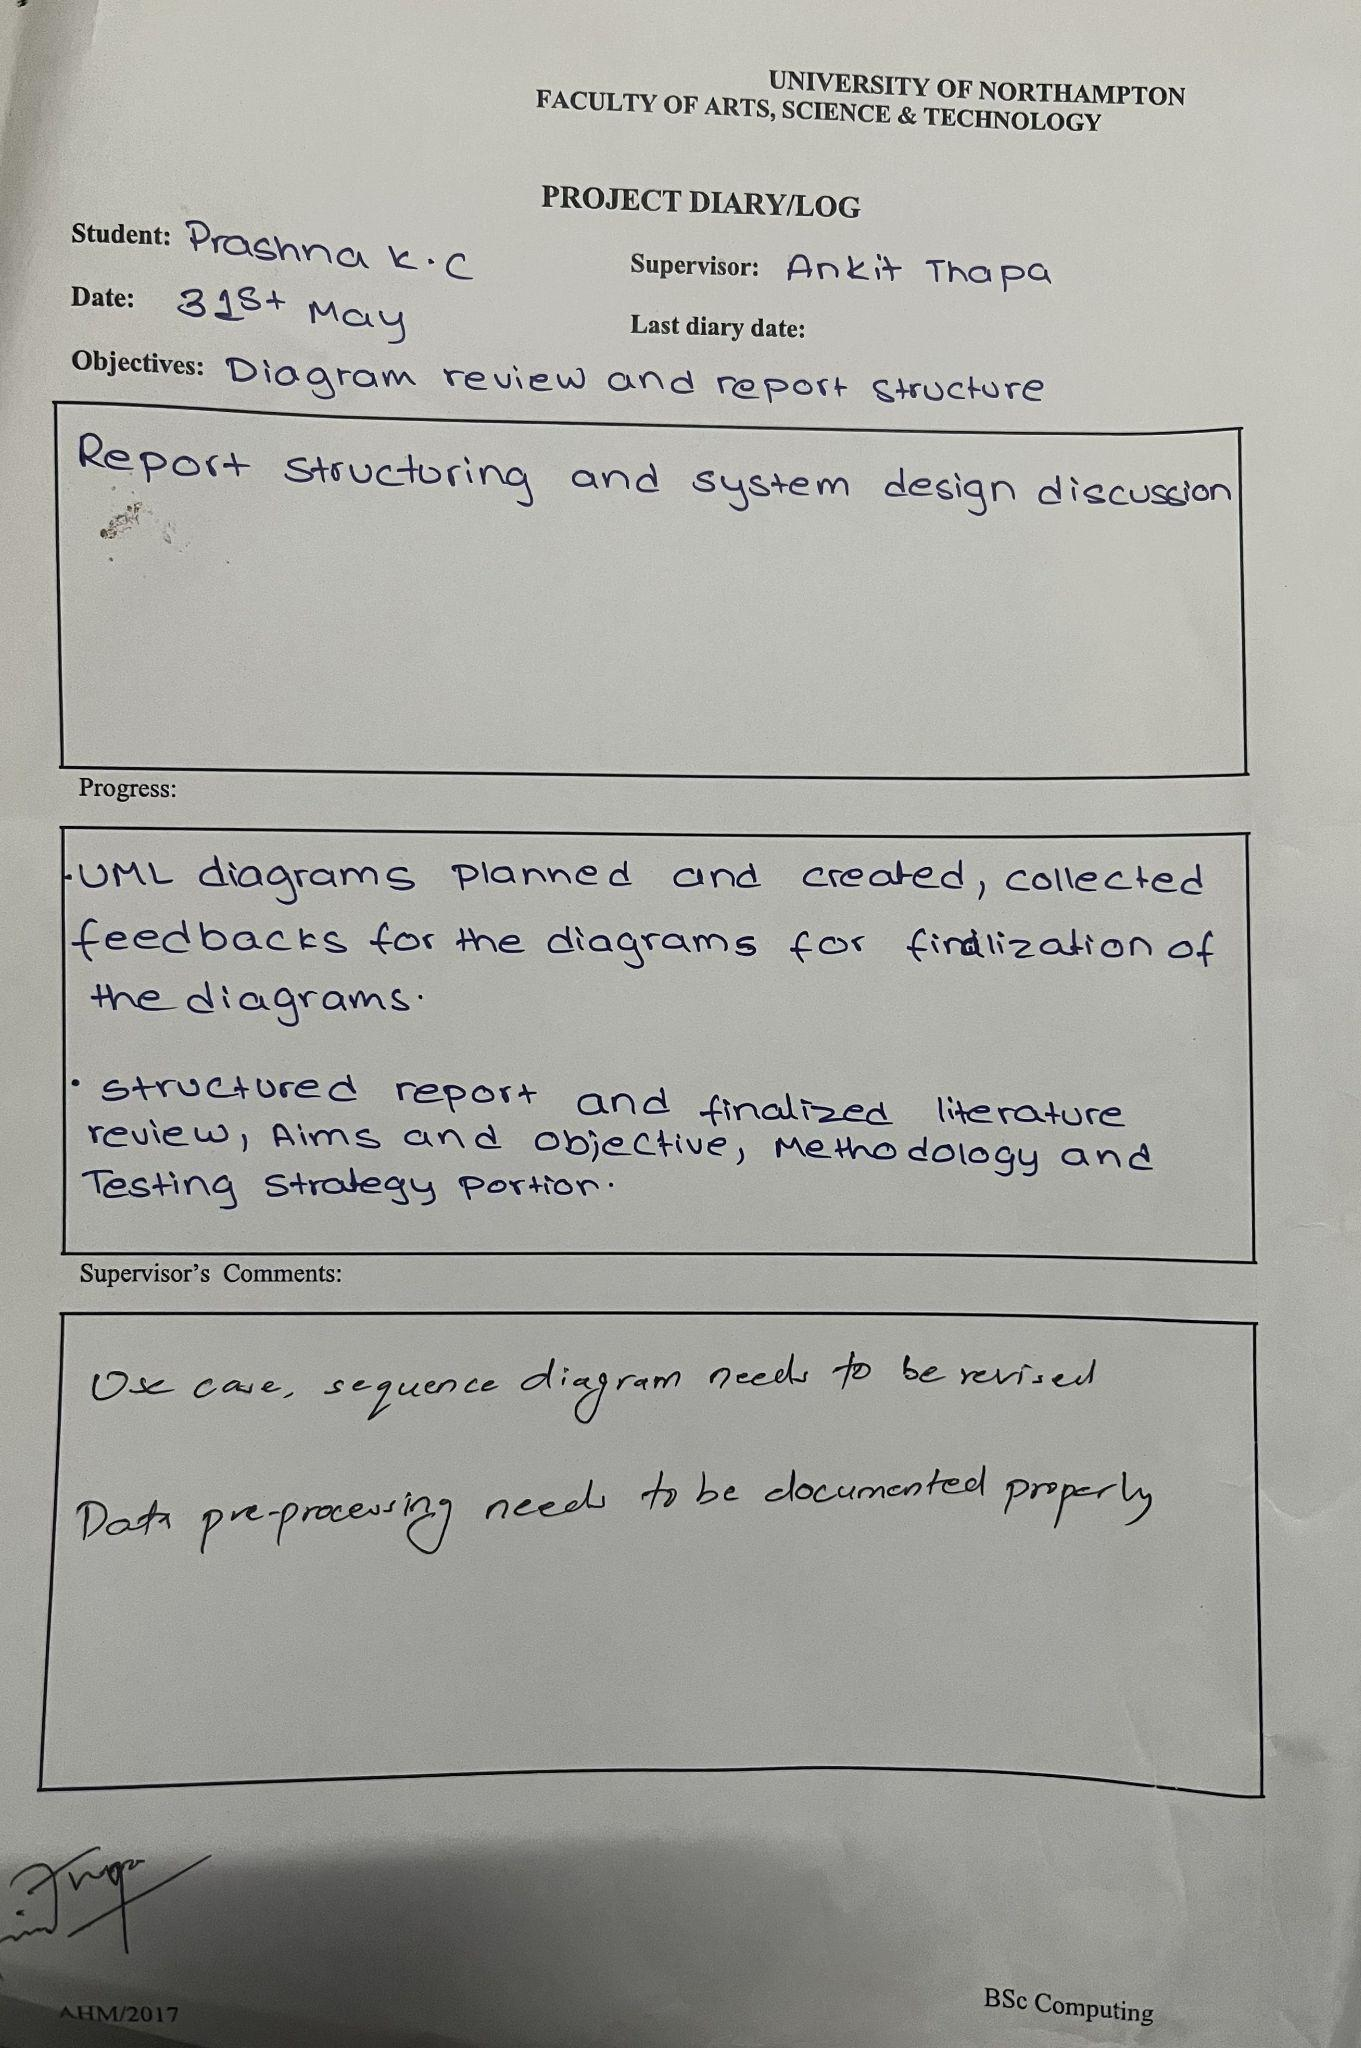 UNIVERSITY OF NORTHAMPTON
FACULTY OF ARTS, SCIENCE & TECHNOLOGY
PROJECT DIARY/LOG
Student: Prashna K.C
Supervisor: Ankit Thapa
Date: 31st May
Last diary date:
Objectives: Diagram review and report structure
Report structuring and system design discussion
Progress:
· UML diagrams planned and created, collected
feedbacks for the diagrams for finalization of
the diagrams.
· structured report and finalized literature
review, Aims and objective, Methodology and
Testing strategy portion.
Supervisor's Comments:
Use case, sequence diagram needs to be revised
Data pre-processing needs to be documented properly
AHM/2017
BSc Computing